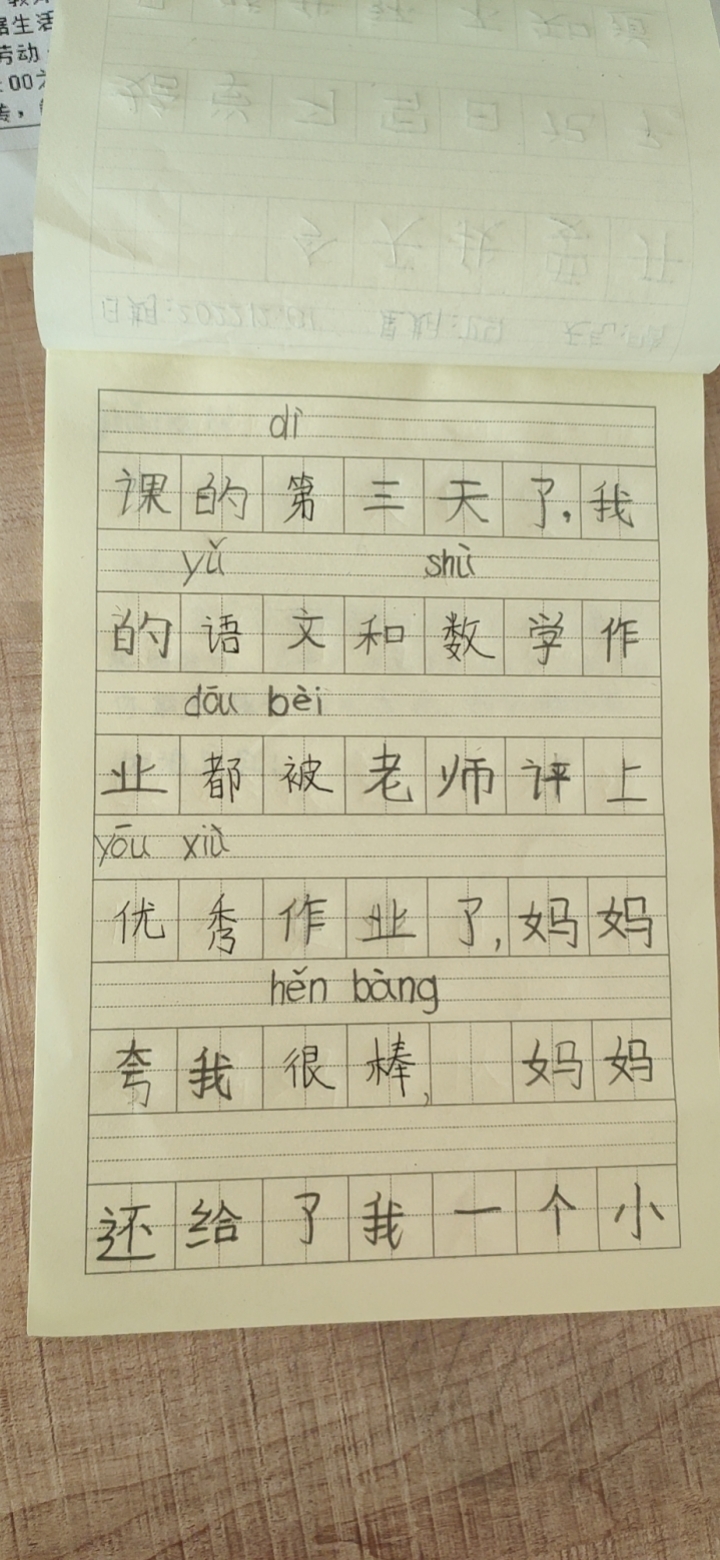 居生活
劳动
:00
dì
课的第三天了,我
yǔ shù
的语文和数学作
dōu bèi
业都被老师评上
yōu xiù
优秀作业了,妈妈
hěn bàng
夸我很棒, 妈妈
还给了我一个小